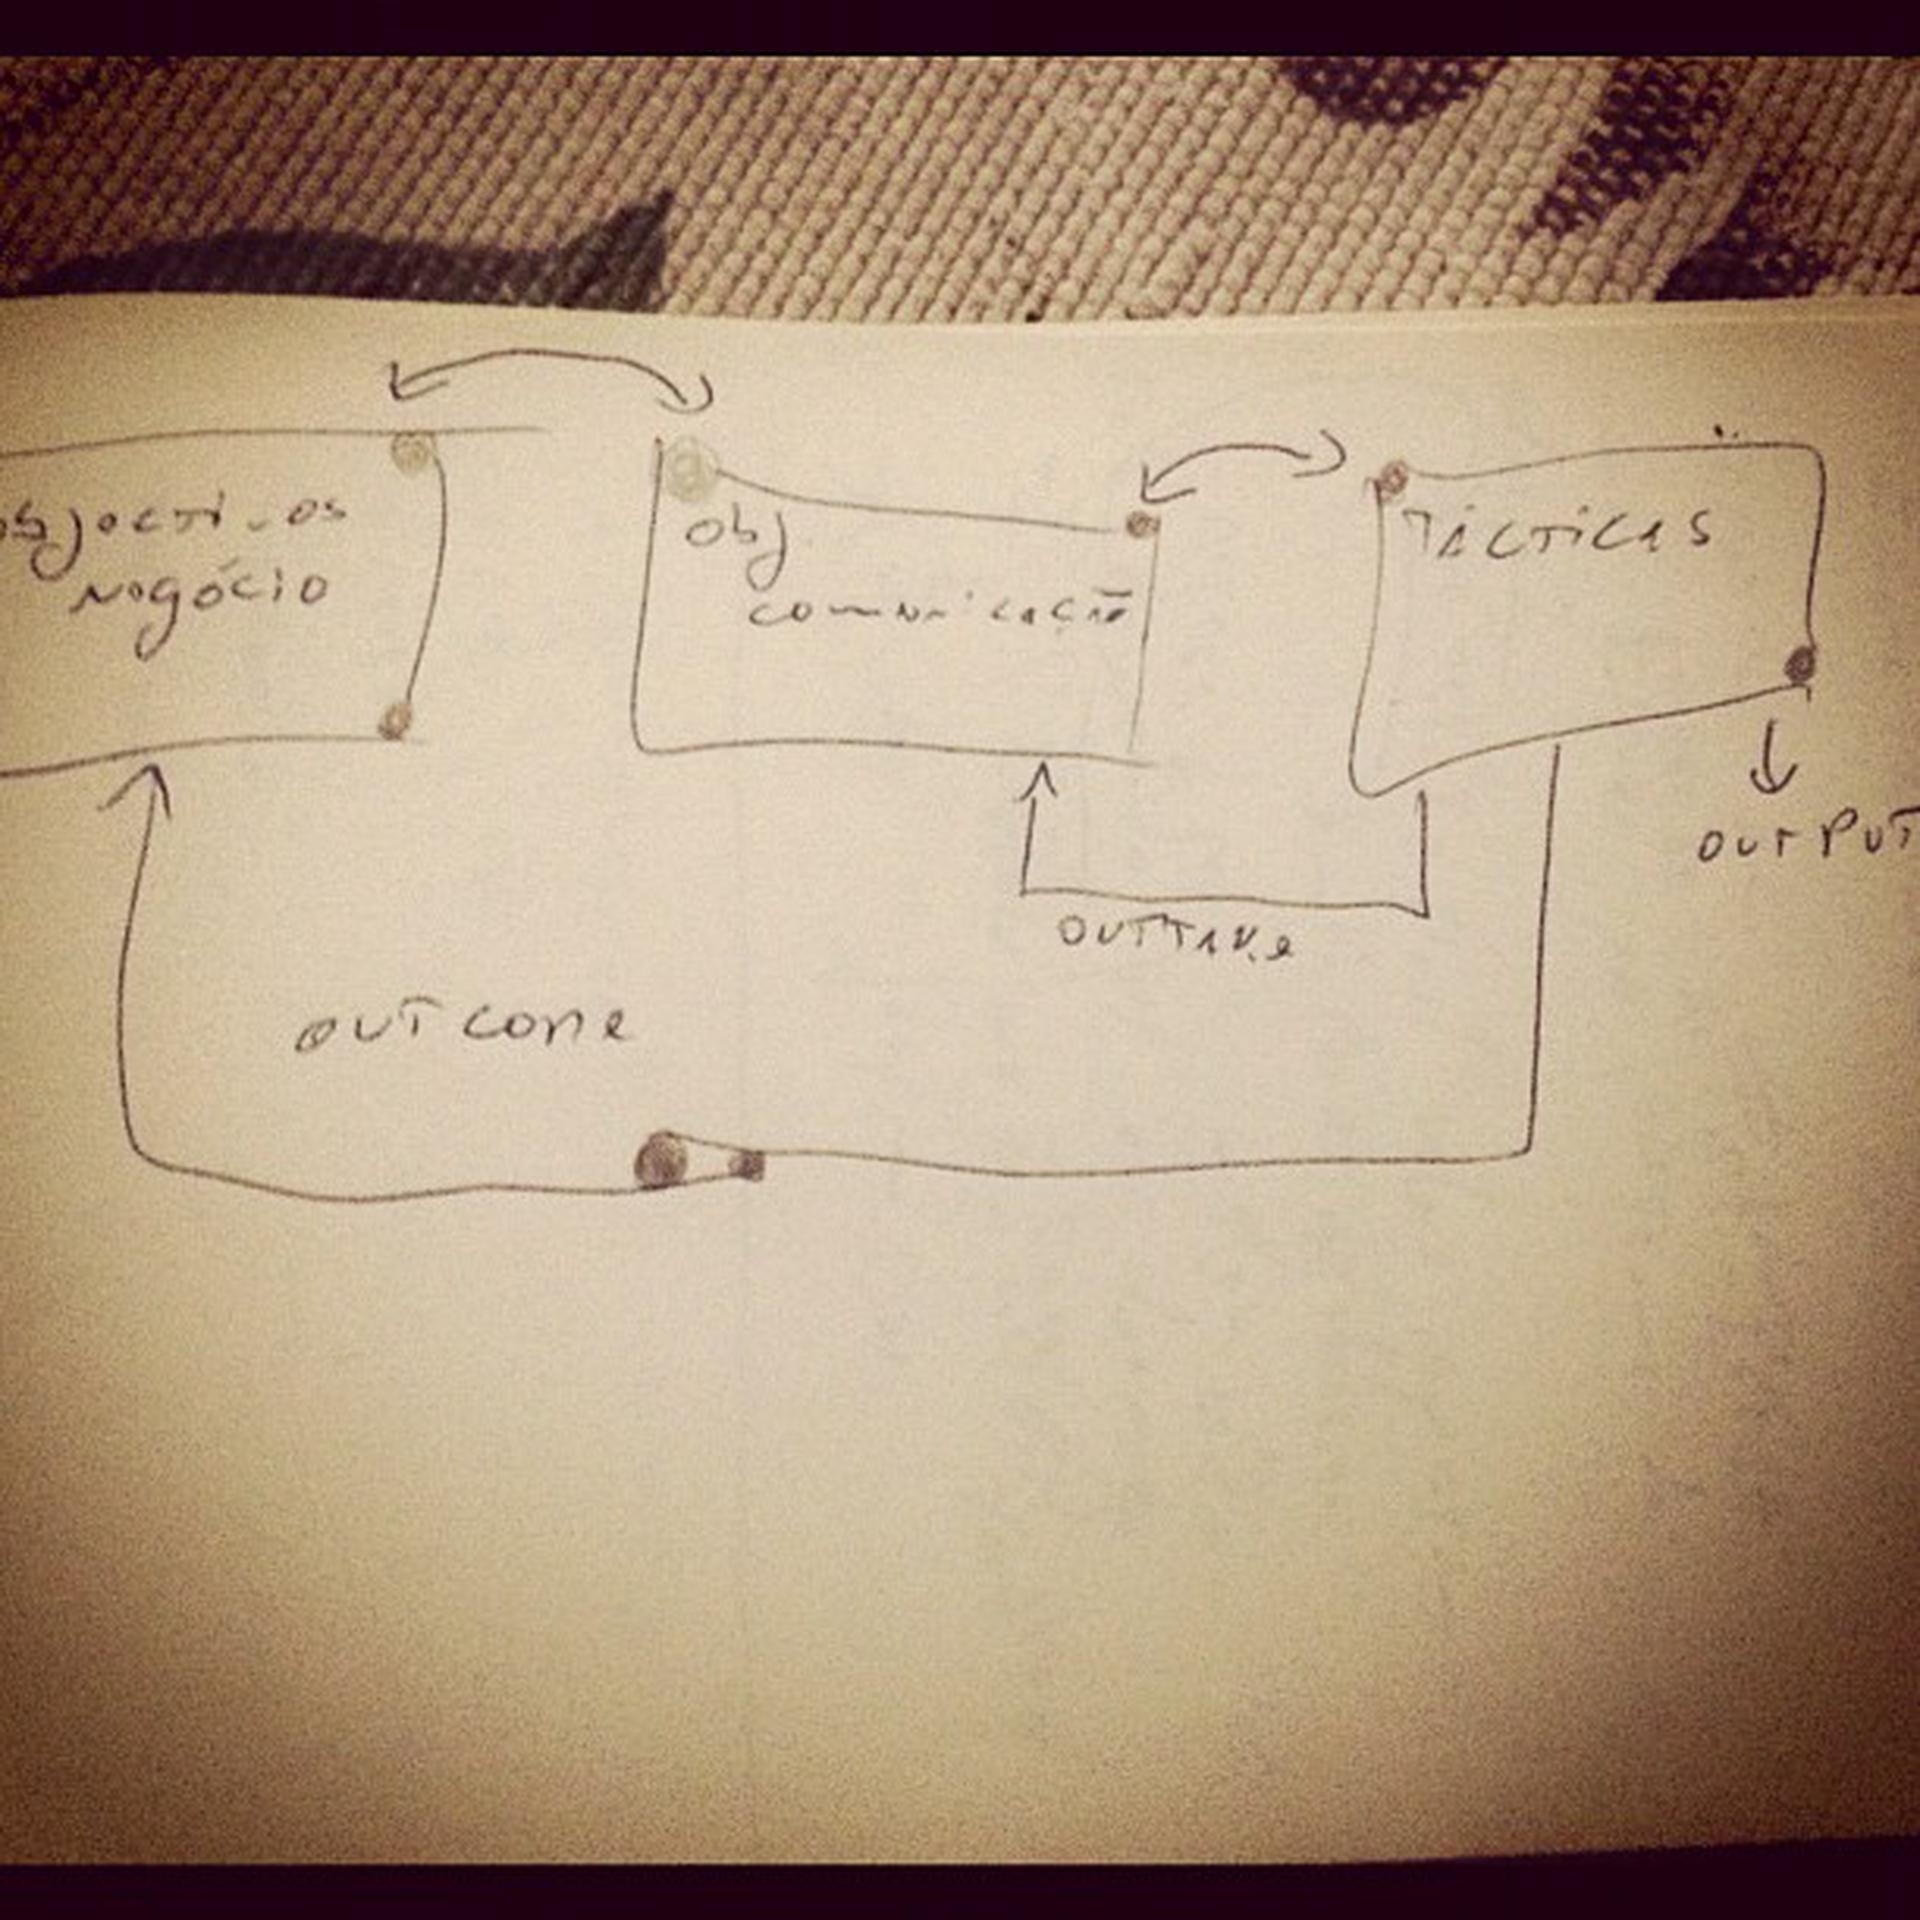 objectivos
negócio
obj
comunicação
TÁCTICAS
OUTPUT
OUTTAKe
OUTCOMe